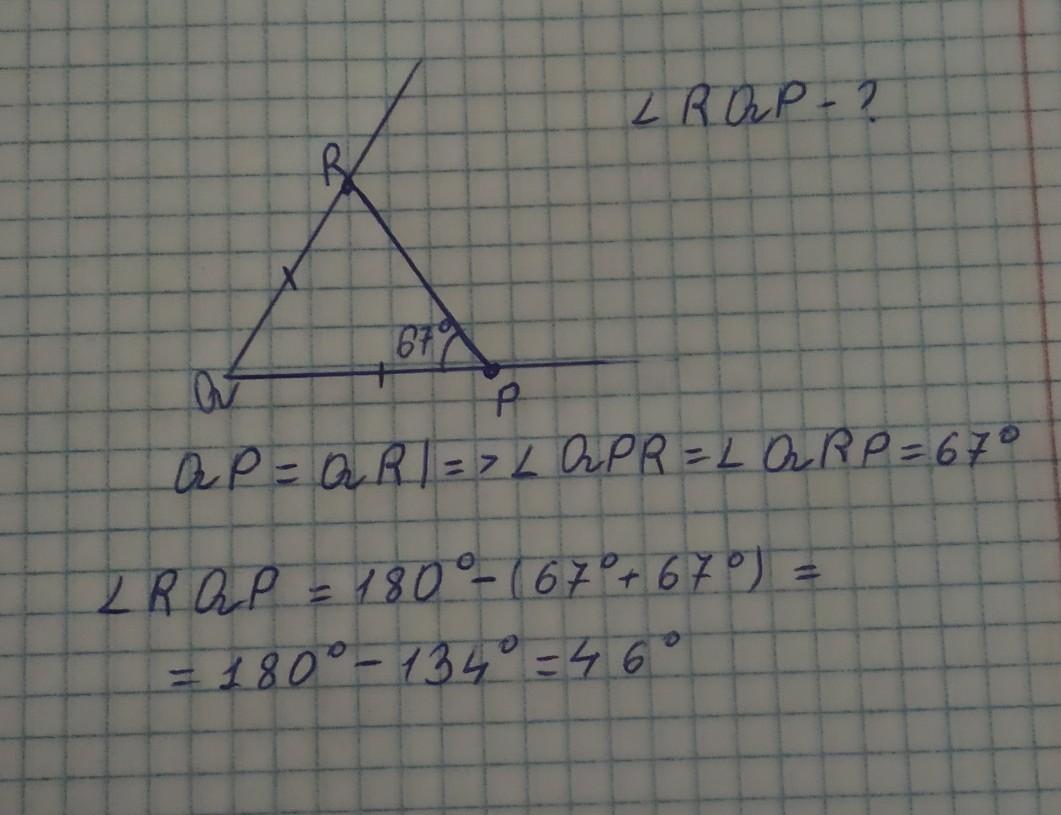 ∠RQP - ?
R
67°
Q
P
QP = QR | => ∠QPR = ∠QRP = 67°
∠RQP = 180° - (67° + 67°) =
= 180° - 134° = 46°